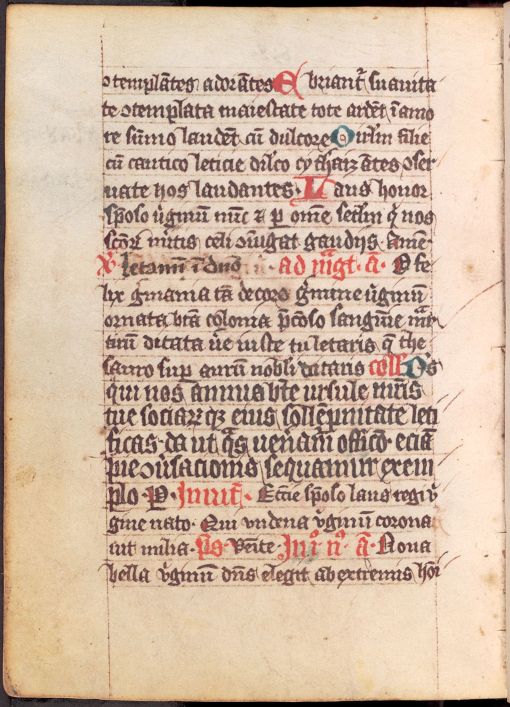 otemplātes adorātes Ebriant᷑ suavita
te otemplata maiestate tote ardēt ī amo
re sūmo laudēt cū dulcore O vīm filie
cū cantico leticie dulco cytharizātes oser
uate hos laudantes. Laus honor
sposo v᷑ginū nūc & p omē seclm q nos
scōr m᷑itis celi oiugat gaudijs. amē
℣. letamī ī dno ad mag̅t. a̅. O fe
lix g᷑mania tā decoro g᷑mine v᷑ginū
ornata btā colonia p̄cioso sanguīe m̄r
tirū ditata v᷑e iuste tu letaris q the
sauro sup aurum nobli ditaris coll Ds
qui nos annua bte ursule m̄ris
tue sociarūqz eius sollēpnitate leti
ficas. da ut q̄s uenam᷑ officō. eciā
pie oūsacionis sequamur exem
plo. P. Inuit᷑. Eccie sposo laus regi v᷑
gine nato. Qui vndena v᷑ginū corona
uit milia. ps. venite. In i᷑ n̊. a̅. Noua
bella v᷑ginū dn̄s elegit ab extremis hor